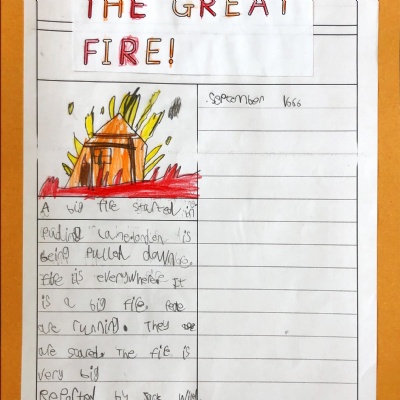 THE GREAT
FIRE!
September 1666
A big fire started in
Puding Lane london is
being pulled down.
Fire is everywhere It
is a big fire.
are running. They are
are scared. The fire is
very big
Reported by Jack